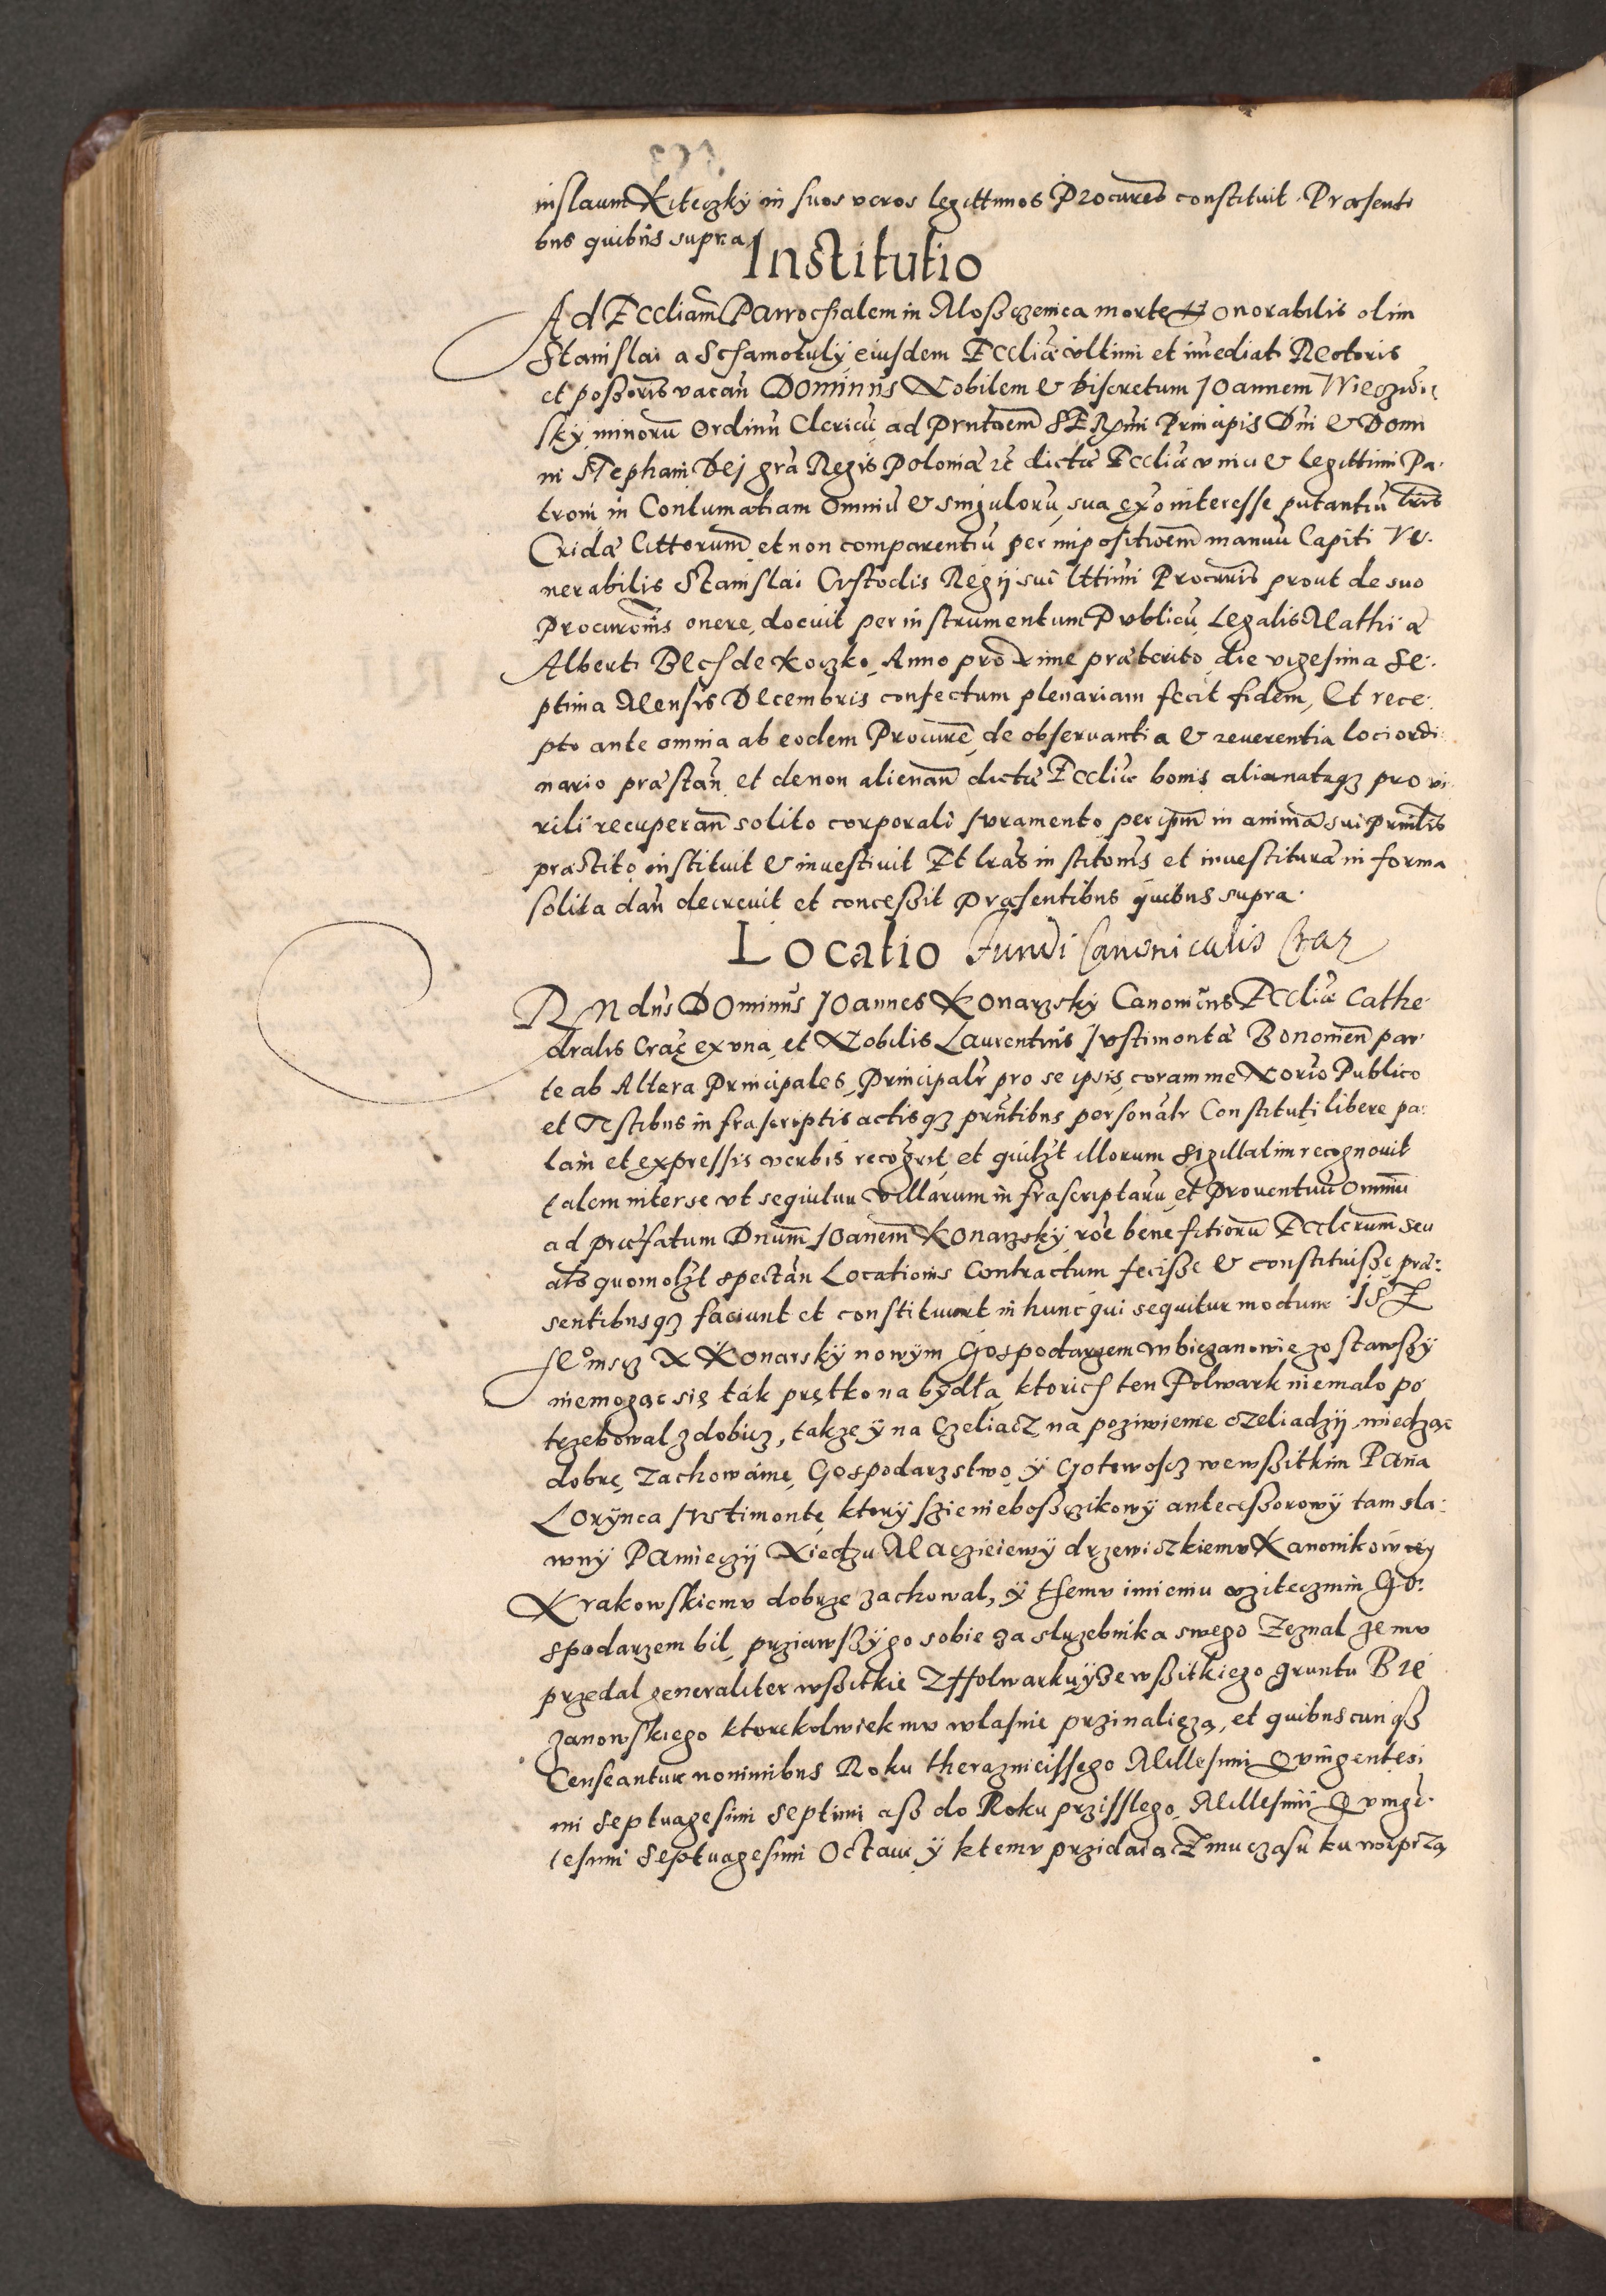 nislaum Kiteczky in suos veros legittimos Procures constituit. Præsenti
bus quibus supra
Institutio
Ad Eccliam Parrochialem in Mosczenica morte Honorabilis olim
Stanislai a Schamotuly eiusdem Eccliæ vltimi et imediati Rectoris
et poßoris vacan Dominus Nobilem & discretum Joannem
sky minoru Ordinu Clericu ad Prntaem SERmi Principis Dni & Domi
ni STephani Dej gra Regis Poloniæ &c dictæ Eccliæ vnici & legittimi Pa:
troni in Contumatiam omniu & singuloru sua exo interesse putantiu lris
Cridæ Cittorum et non comparentiu per impositioem manuu Capiti Ve:
nerabilis Stanislai Custodis Regij sui lttimi Procuris prout de suo
Procurois onere docuit per instrumentum Publicu Legalis Mathiæ
Alberti Blech de Koczko Anno proxime præterito die vigesima Se:
ptima Mensis Decembris confectum plenariam fecit fidem, Et rece:
pto ante omnia ab eodem Procure de obseruantia & reuerentia loci ordi:
nario præstan et de non alienan dictæ Eccliæ bonis alienatisqz pro vi:
rili recuperan solito corporali Juramento per ipm in anima sui prnlis
præstito instituit & inuestiuit Et lras instituois et inuestituræ in forma
solita dan decreuit et conceßit Præsentibus quibus supra.
Locatio fundi Canonicalis Crac
RNdus DOminus JOannes KOnarzsky Canonicus Eccliæ Cathe:
dralis Crac ex vna et Nobilis Laurentius Justimontæ Bononien par:
te ab Altera Principales Principalr pro se ipsis coram me Norio Publico
et Testibus infrascriptis actisqz prntibus personalr Constituti libere pa:
lam et expressis verbis recogrit et quilzt illorum sigillatim recognouit
talem inter se vt sequitur villarum infrascriptaru et Prouentuu omniu
ad præfatum Dnum JOanem KOnarzsky roe benefitioru Ecclcrum seu
als quomolzt spectan Locationis Contractum fecisße & constituisße præ:
sentibusqz faciunt et constituunt in hunc qui sequitur modum ISZ
Je°msz X Konarsky nowym Gospodarzem w biezanowie zostawszy
niemogąc się ták prętko na bydła ktorich ten Folwark niemalo po
trzebowal zdobicz, takze y na Czeliacz na poziwienie czeliadzij wiedząc
dobre zachowáine Gospodarzstwo y Gotowoscz wewßitkim Pána
Lorynca Justimontę, ktory szie nieboßczikowy anteceßorowy tam sla:
wny Pamieczij Xiedzu Macieiewy drzewiczkiemu Kanonikowi
Krakowskiemu dobrze zachowal, y themu imieniu vziteczniin Go:
spodarzem bil, prziawßy go sobie za sluzebnika swego Zeznal ze mu
przedal generaliter wßitkie Z ffolwarku y ze wßitkiego gruntu Bie
zanowskiego ktorekolwiek mu wlasnie przinalięzą, et quibuscunqz
Censeantur nominibus Roku theraznieissego Millesimi Quingentesi
mi septuagesimi septimi aß do Roku prziszlego Millesimi Quinge:
tesimi septuagesimi Octaui y ktemu przidaia Z mu czasu ku